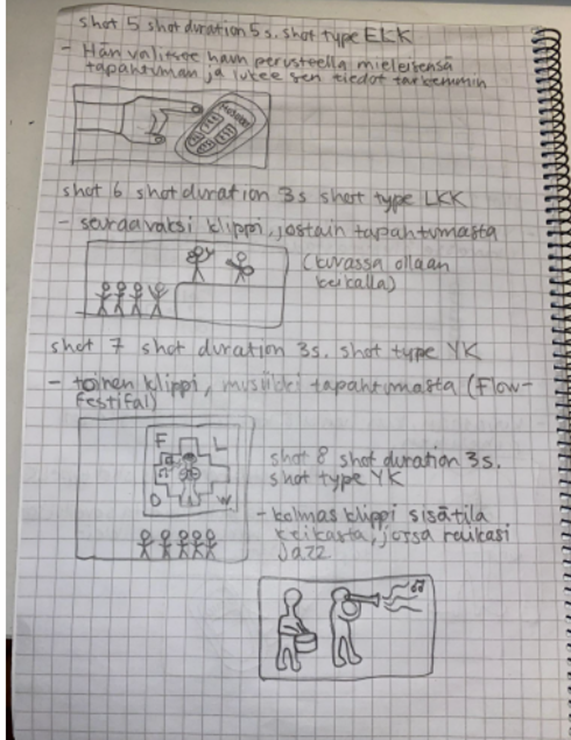 shot 5 shot duration 5 s. shot type EKK
- Hän valitsee haun perusteella mieleisensä
tapahtuman ja lukee sen tiedot tarkemmin
shot 6 shot duration 3s shot type LKK
- seuraavaksi klippi, jostain tapahtumasta
(kuvassa ollaan
keikalla)
shot 7 shot duration 3s. shot type YK
- toinen klippi, musiikki tapahtumasta (Flow-
festifal)
F L
O W
shot 8 shot duration 3s.
shot type YK
- kolmas klippi sisätila
keikasta, jossa raikasi
Jazz